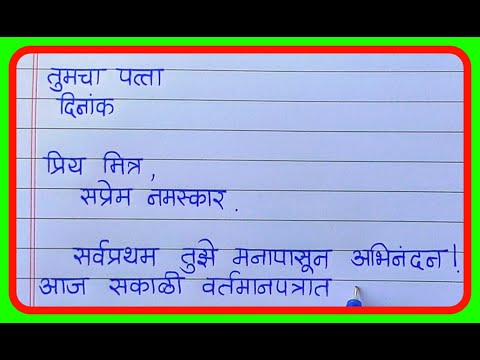 तुमचा पत्ता
दिनांक
प्रिय मित्र,
सप्रेम नमस्कार.
सर्वप्रथम तुझे मनापासून अभिनंदन!
आज सकाळी वर्तमानपत्रात